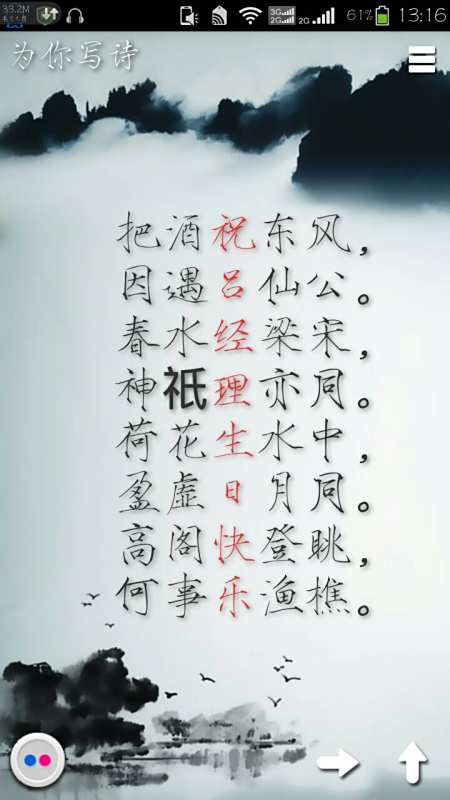 33.2M
3G 2G 2G 61% 13:16
为你写诗
把酒祝东风，
因遇吕仙公。
春水经梁宋，
神祇理亦同。
荷花生水中，
盈虚日月同。
高阁快登眺，
何事乐渔樵。